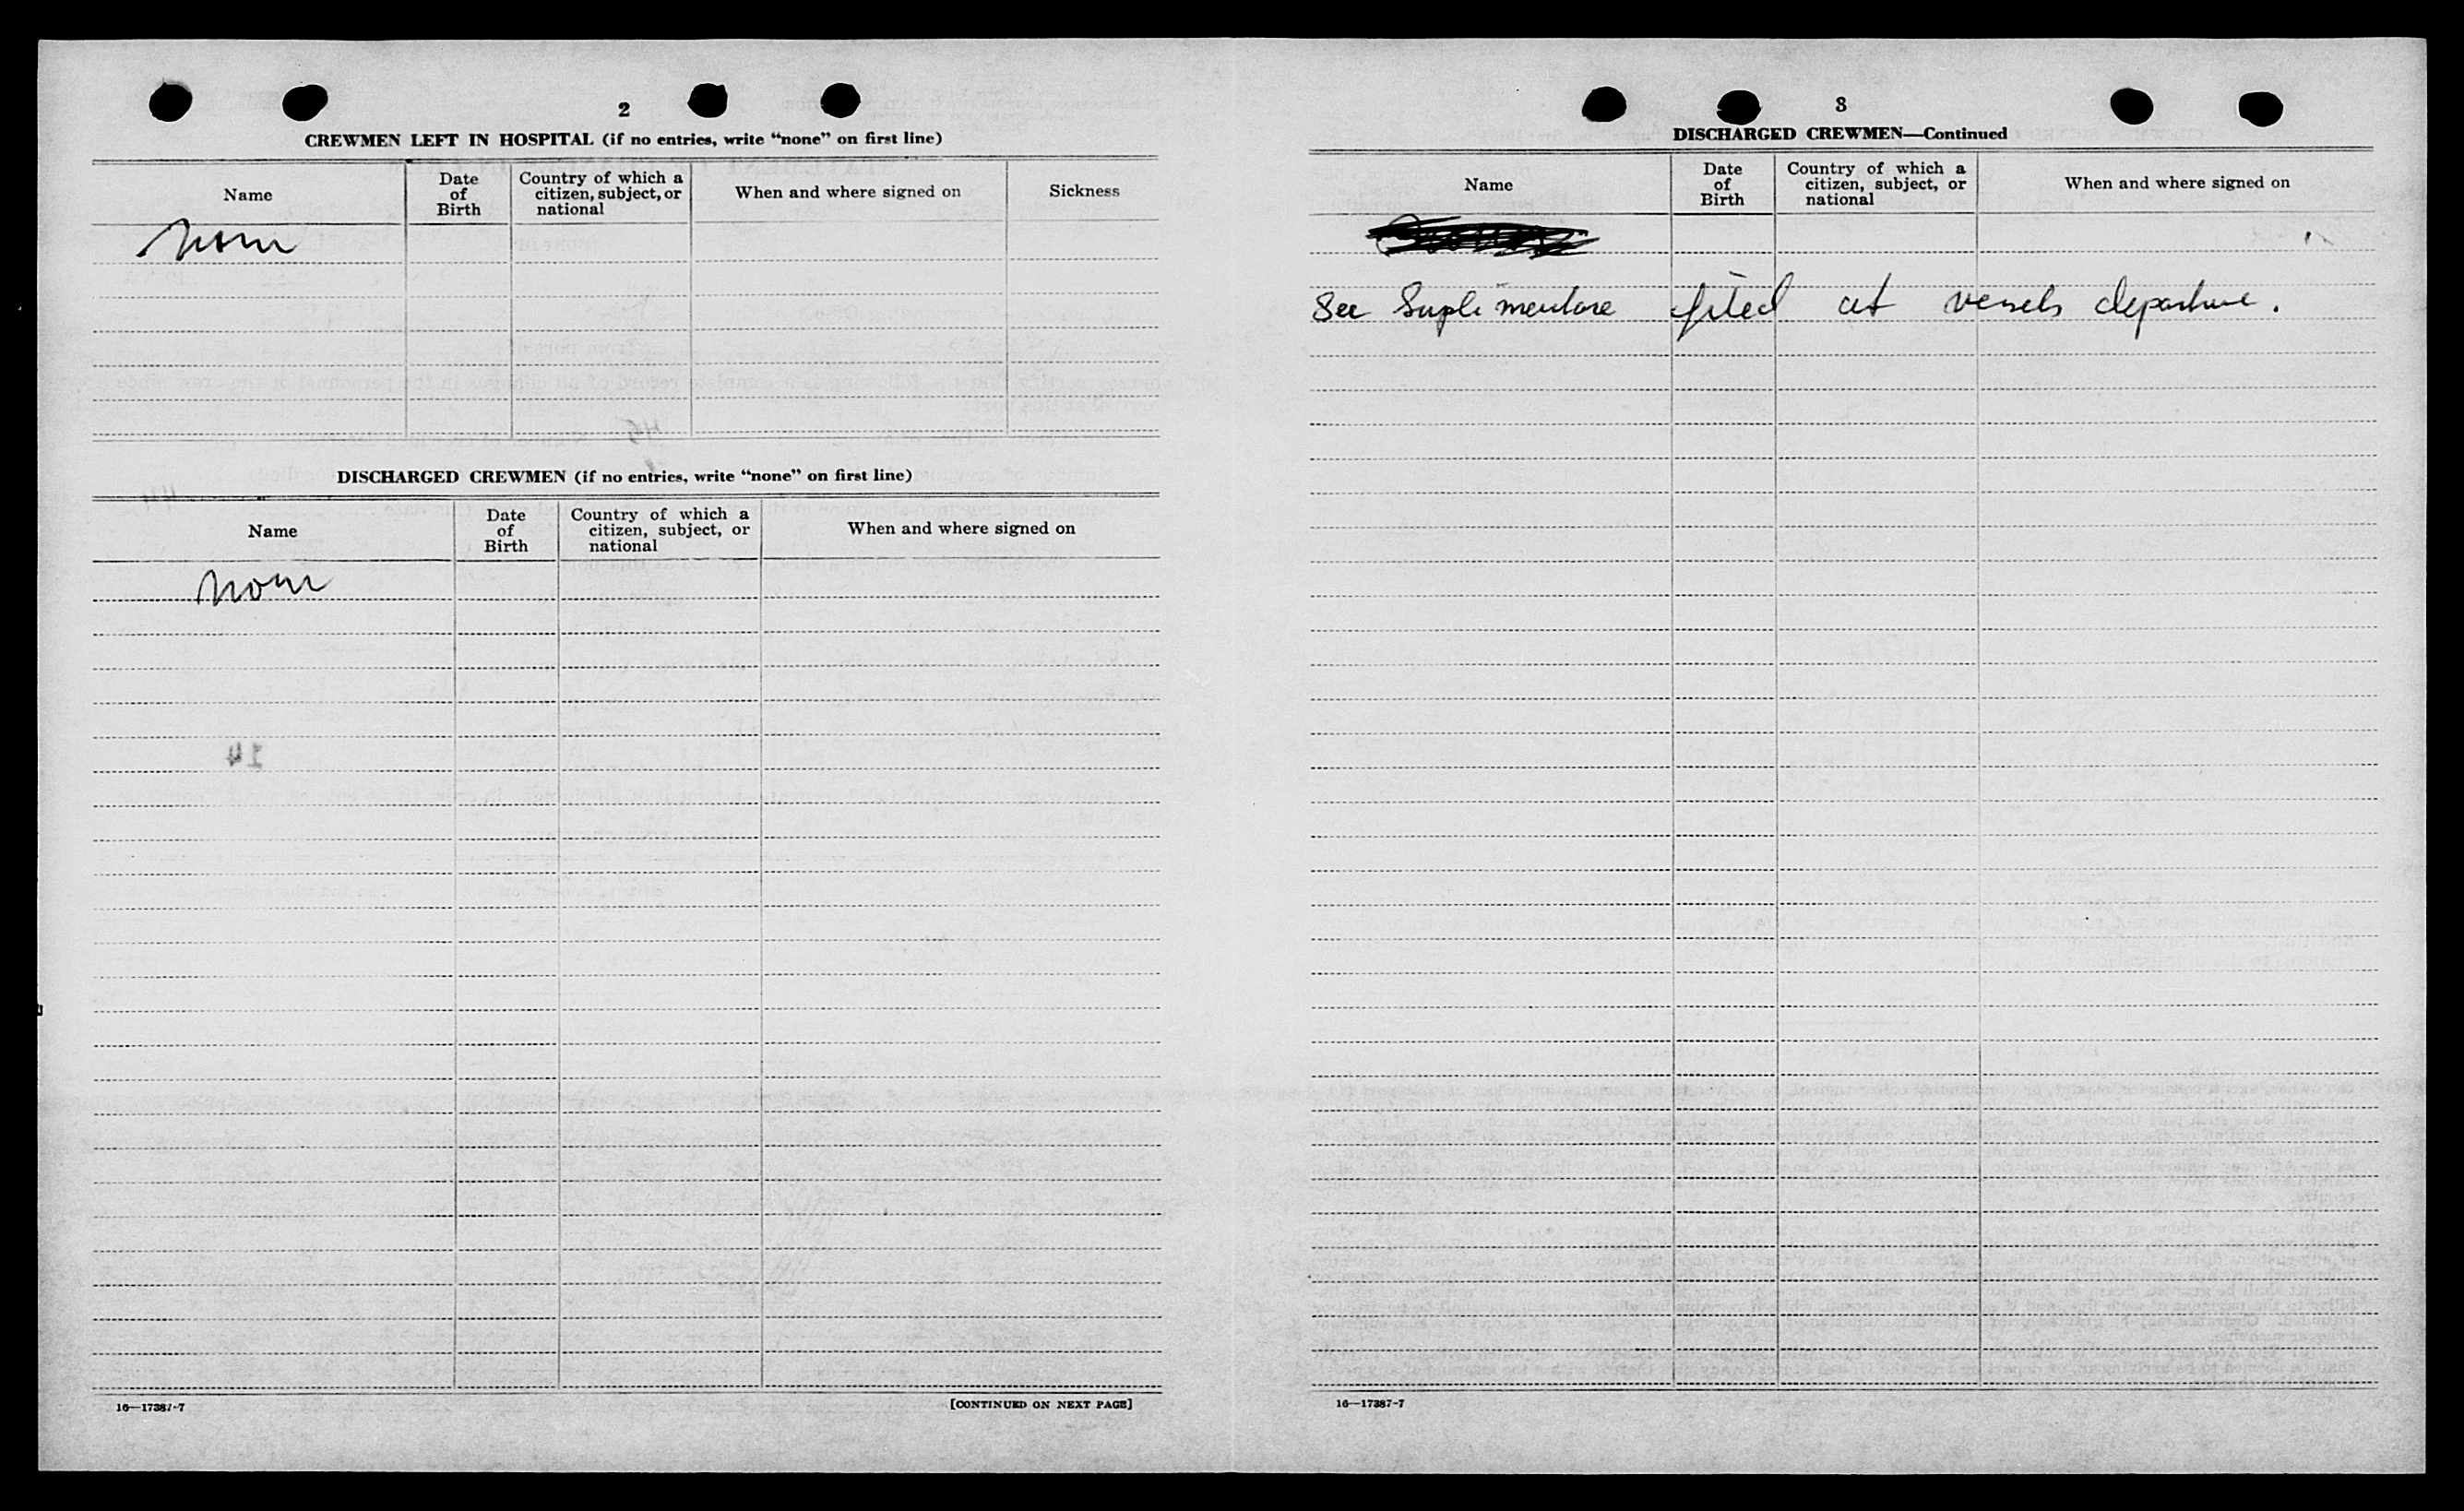 2
CREWMEN LEFT IN HOSPITAL (if no entries, write “none” on first line)
Name
Date of Birth
Country of which a citizen, subject, or national
When and where signed on
Sickness
None
DISCHARGED CREWMEN (if no entries, write “none” on first line)
Name
Date of Birth
Country of which a citizen, subject, or national
When and where signed on
None
14
16—17387-7 [CONTINUED ON NEXT PAGE]
3
DISCHARGED CREWMEN—Continued
Name
Date of Birth
Country of which a citizen, subject, or national
When and where signed on
See Suplimentare filed at vessels departure.
16—17387-7